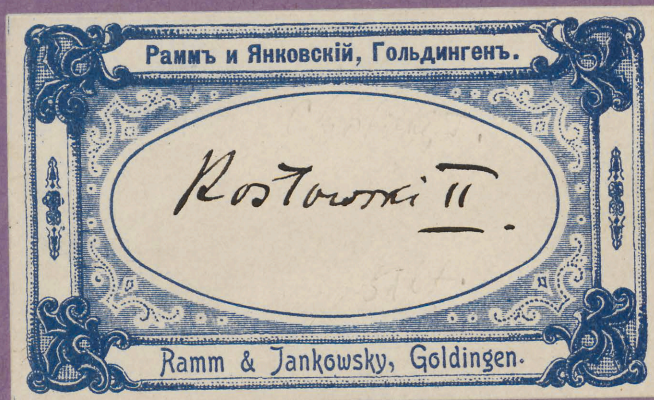 Раммъ и Янковскій, Гольдингенъ.
Rostowski II.
Ramm & Jankowsky, Goldingen.